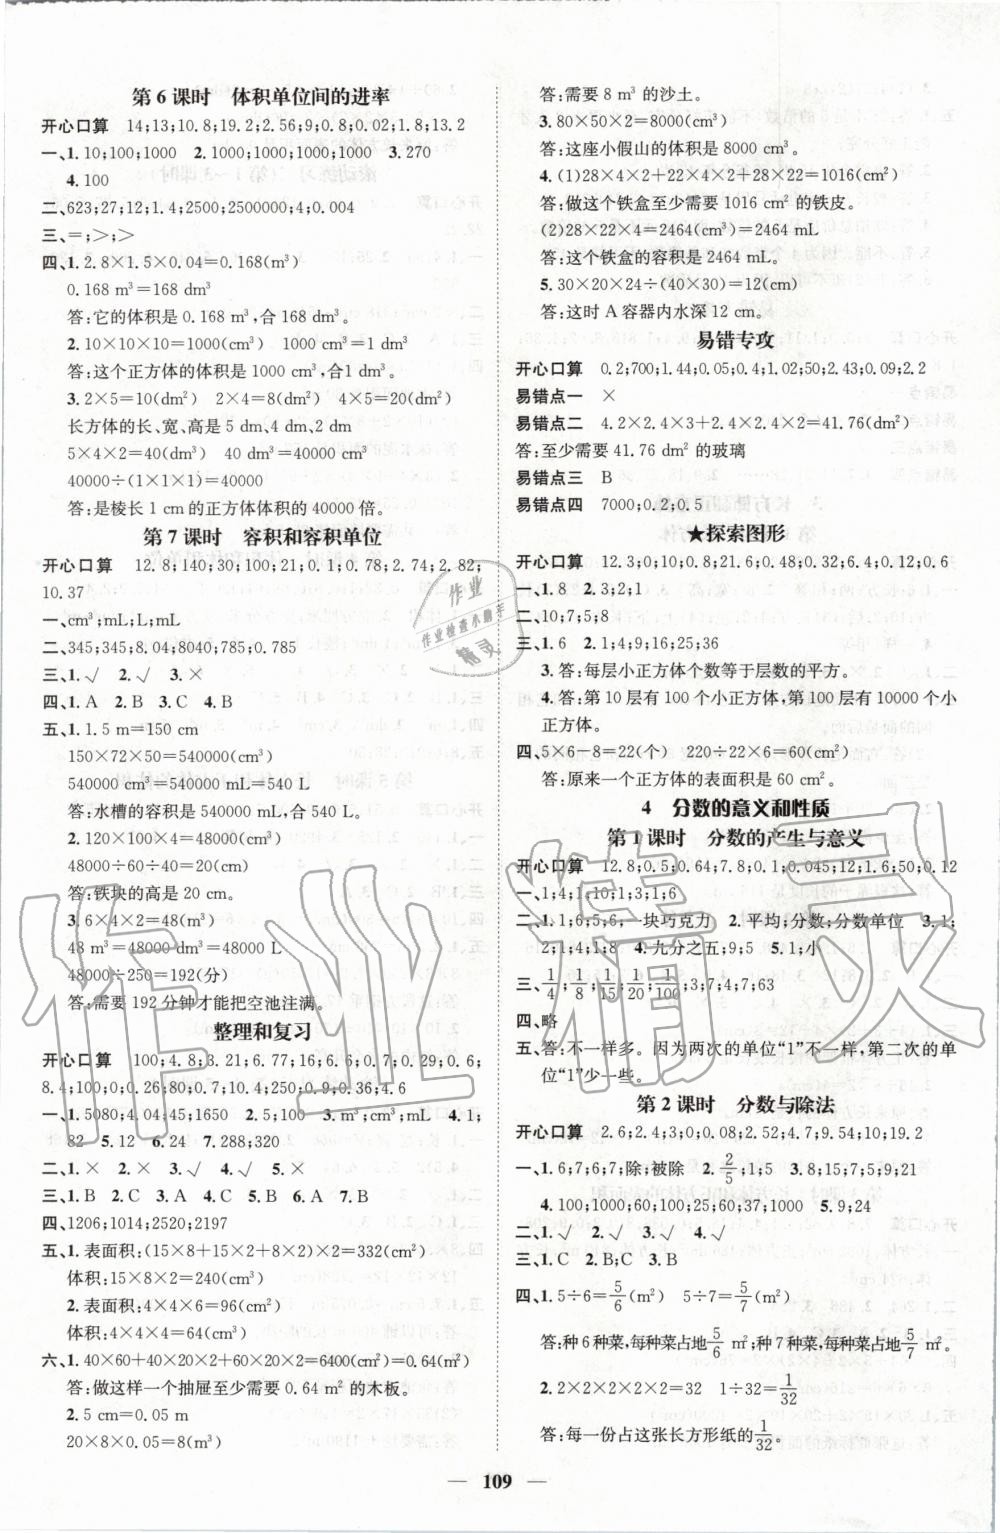 第6课时　体积单位间的进率
开心口算　14;13;10.8;19.2;2.56;9;0.8;0.02;1.8;13.2
一、1.10;100;1000　2.1000;1000;1000　3.270
4.100
二、623;27;12;1.4;2500;2500000;4;0.004
三、=;>;>
四、1.2.8×1.5×0.04=0.168(m³)
0.168 m³=168 dm³
答:它的体积是 0.168 m³,合 168 dm³。
2.10×10×10=1000(cm³)　1000 cm³=1 dm³
答:这个正方体的体积是 1000 cm³,合1 dm³。
3.2×5=10(dm²)　2×4=8(dm²)　4×5=20(dm²)
长方体的长、宽、高是 5 dm、4 dm、2 dm
5×4×2=40(dm³)　40 dm³=40000 cm³
40000÷(1×1×1)=40000
答:是棱长 1 cm 的正方体体积的 40000 倍。
第7课时　容积和容积单位
开心口算　12.8;140;30;100;21;0.1;0.78;2.74;2.82;
10.37
一、cm³;mL;L;mL
二、345;345;8.04;8040;785;0.785
三、1.√　2.√　3.×
四、1.A　2.B　3.C　4.B
五、1.1.5 m=150 cm
150×72×50=540000(cm³)
540000 cm³=540000 mL=540 L
答:水槽的容积是 540000 mL,合 540 L。
2.120×100×4=48000(cm³)
48000÷60÷40=20(cm)
答:铁块的高是 20 cm。
3.6×4×2=48(m³)
48 m³=48000 dm³=48000 L
48000÷250=192(分)
答:需要 192 分钟才能把空池注满。
整理和复习
开心口算　100;4.8;3.21;6.77;16;6.6;0.7;0.29;0.6;
8.4;100;0.26;80;0.7;10.4;250;0.9;0.36;4.6
一、1.5080;4.04;45;1650　2.5;100　3.m³;cm³;mL　4.1;
82　5.12　6.24　7.288;320
二、1.×　2.×　3.√　4.√　5.×
三、1.B　2.C　3.A　4.B
四、1206;1014;2520;2197
五、1.表面积:(15×8+15×2+8×2)×2=332(cm²)
体积:15×8×2=240(cm³)
2.表面积:4×4×6=96(cm²)
体积:4×4×4=64(cm³)
六、1.40×60+40×20×2+60×20×2=6400(cm²)=0.64(m²)
答:做这样一个抽屉至少需要 0.64 m²的木板。
2.5 cm=0.05 m
20×8×0.05=8(m³)
答:需要 8 m³ 的沙土。
3.80×50×2=8000(cm³)
答:这座小假山的体积是 8000 cm³。
4.(1)28×4×2+22×4×2+28×22=1016(cm²)
答:做这个铁盒至少需要 1016 cm² 的铁皮。
(2)28×22×4=2464(cm³)=2464 mL
答:这个铁盒的容积是 2464 mL。
5.30×20×24÷(40×30)=12(cm)
答:这时 A 容器内水深 12 cm。
易错专攻
开心口算　0.2;700;1.44;0.05;0.4;1.02;50;2.43;0.09;2.2
易错点一　×
易错点二　4.2×2.4×3+2.4×2.4×2=41.76(dm²)
答:至少需要 41.76 dm² 的玻璃
易错点三　B
易错点四　7000;0.2;0.5
★探索图形
开心口算　12.3;0;10;0.8;21.6;0.48;0.32;6.4;0.12;0.6
一、1.8　2.3;2;1
二、10;7;5;8
三、1.6　2.1;4;9;16;25;36
3.答:每层小正方体个数等于层数的平方。
4.答:第 10 层有 100 个小正方体,第 100 层有 10000 个小
正方体。
四、5×6-8=22(个)　220÷22×6=60(cm²)
答:原来一个正方体的表面积是 60 cm²。
4　分数的意义和性质
第1课时　分数的产生与意义
开心口算　12.8;0.5;0.64;7.8;0.1;0.045;12;1.6;50;0.12
一、1;4;1;10;1;3;1;6
二、1.1;6;5;6;一块巧克力　2.平均;分数;分数单位　3.1;
2;1;4;1;8　4.九分之五;9;5　5.1;小
三、1/4;1/8;1/15;1/20;1/100;3;7;4;7;63
四、略
五、答:不一样多。因为两次的单位“1”不一样,第二次的单
位“1”少一些。
第2课时　分数与除法
开心口算　2.6;2.4;3;0;0.08;2.52;4.7;9.54;10;19.2
一、1.6;7;6;7;除;被除　2.2/5;1;5　3.8;15;7;5;9;21
4.100;1000;60;1000;25;100;60;37;1000　5.9;24
二、1.√　2.×　3.√　4.√
三、1.C　2.B;C　3.B
四、1.5÷6=5/6(m²)　5÷7=5/7(m²)
答:种6种菜,每种菜占地5/6 m²;种7种菜,每种菜占地5/7 m²。
2.2×2×2×2×2=32　1÷32=1/32
答:每一份占这张长方形纸的1/32。
109
作业精灵
作业
作业检查小助手
精灵